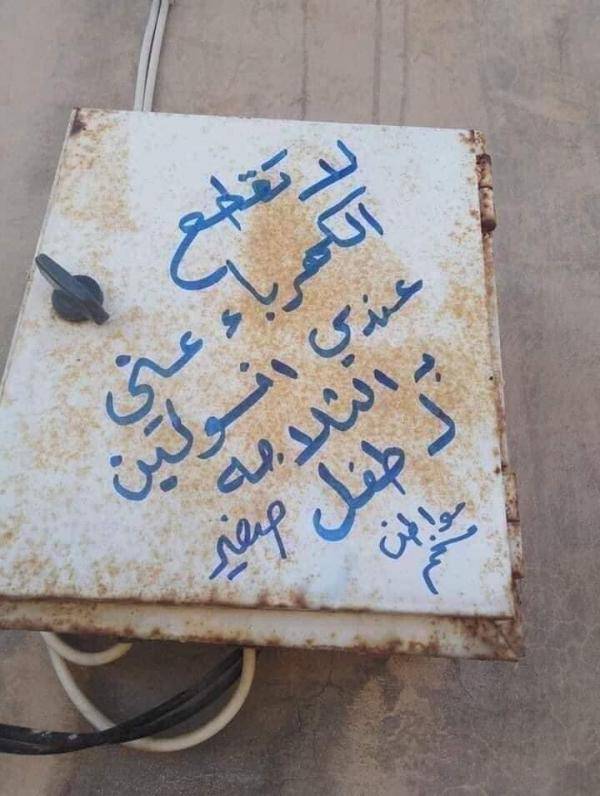 لا تقطع
الكهرباء عني
عندي انسولين
الثلاجه
لـ طفل صغير
مواطن